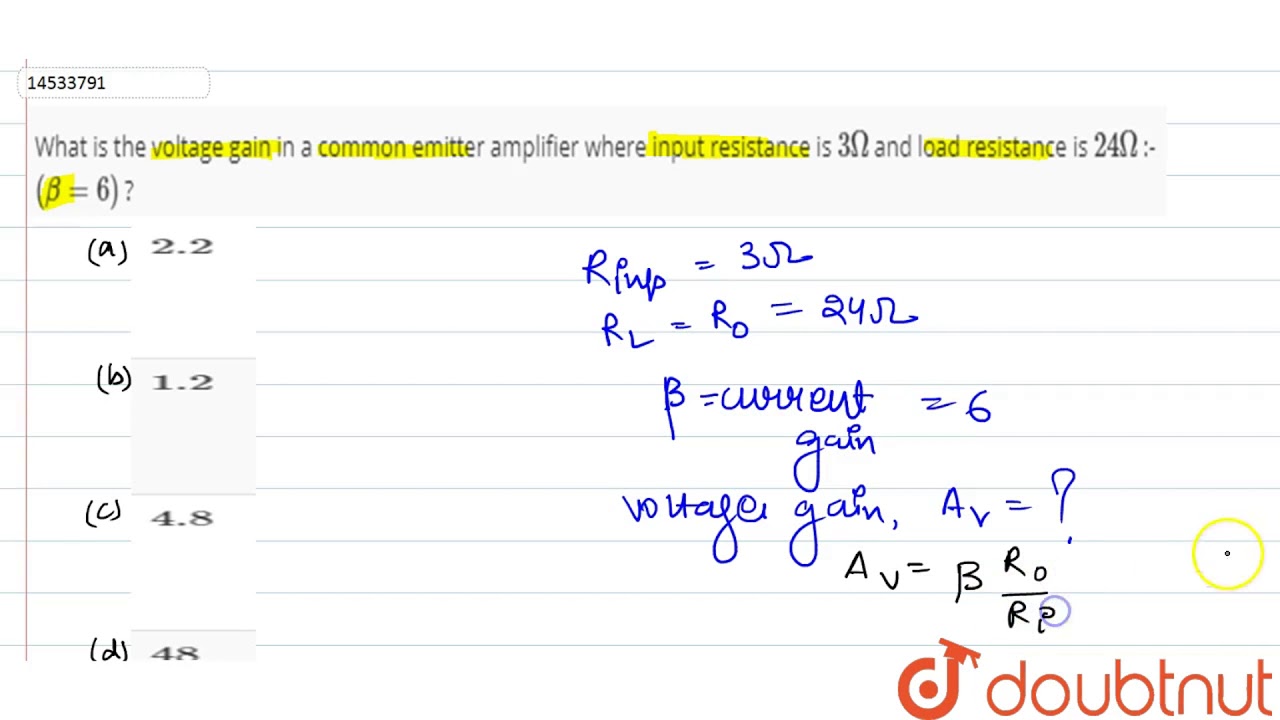 14533791
What is the voltage gain in a common emitter amplifier where input resistance is 3Ω and load resistance is 24Ω :-
(β = 6) ?
(a) 2.2
(b) 1.2
(c) 4.8
(d) 48
Rinp = 3Ω
RL = RO = 24Ω
β = current = 6
gain
voltage gain, Av = ?
Av = β RO
Ri
doubtnut